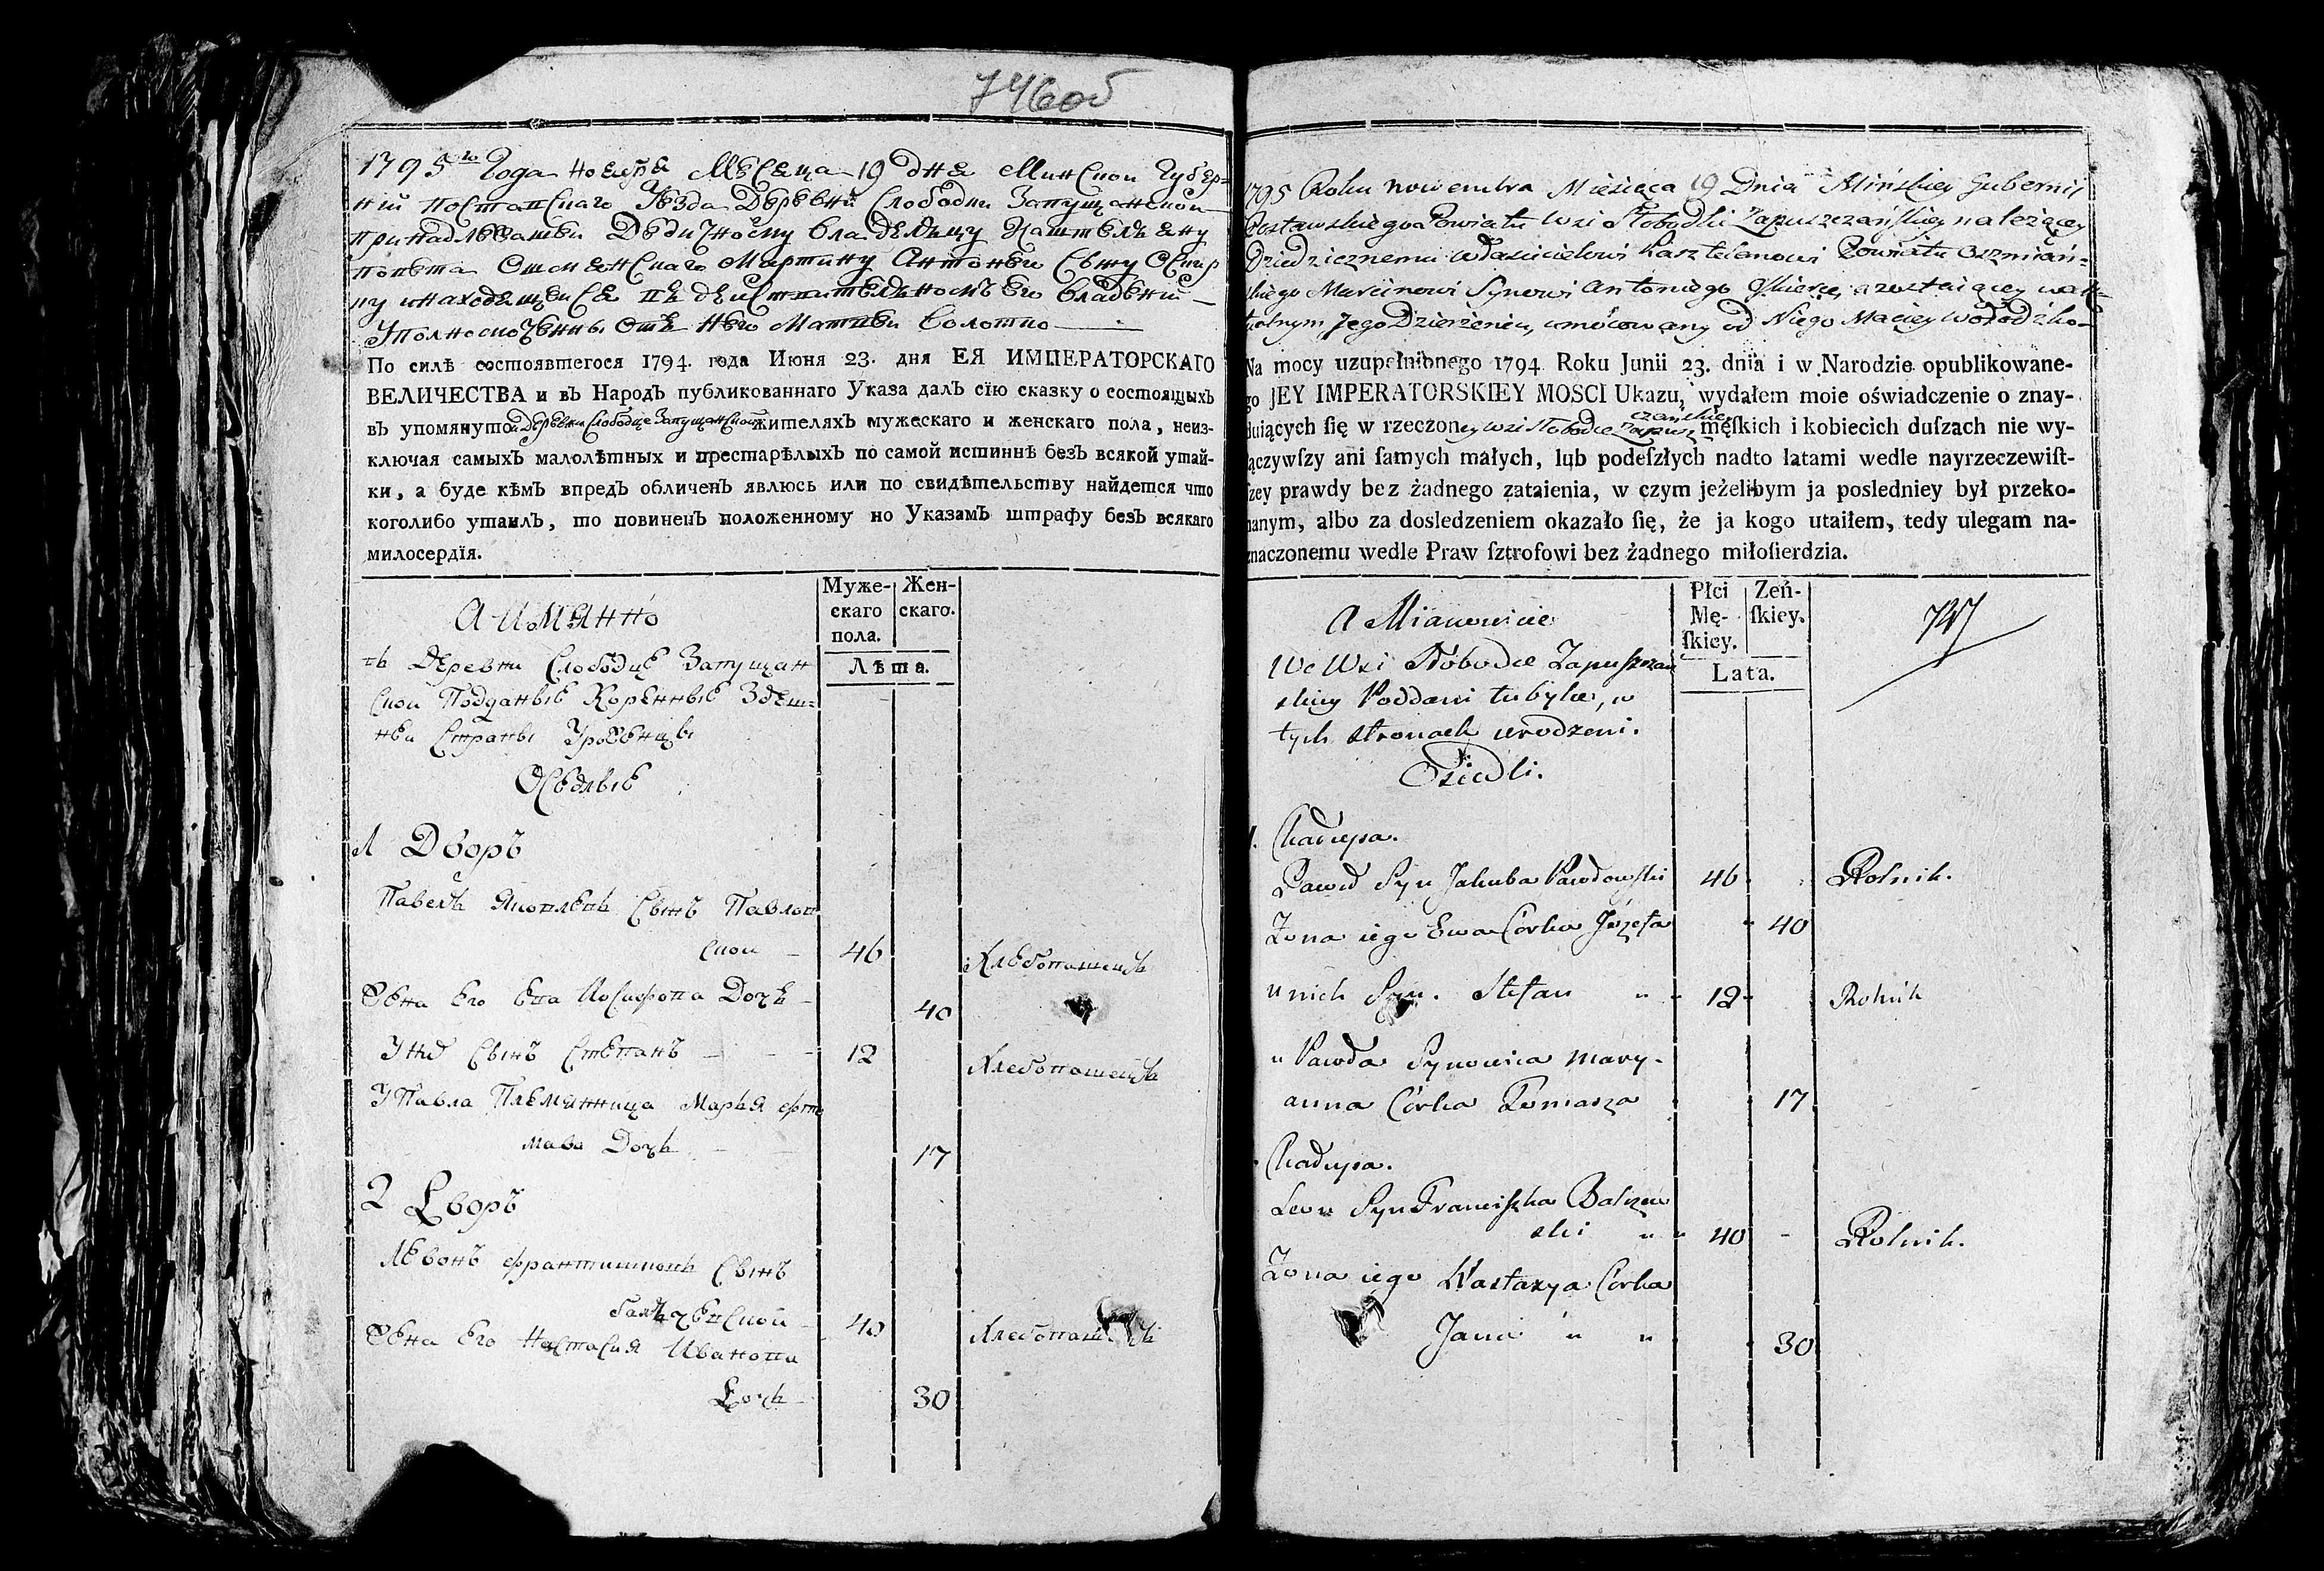 746об
1795го Года ноября Месеца 19 дня Минской Губер=
нии Поставскаго Уезда Деревни Слободки Запущанской
принадлежащей Дедичному владельцу Каштеляну
повета Ошмянскаго Мартину Антонего сыну Оскир
ку инаходящейся въ действительномъ его владении
Уполномоченны отъ Него Матвей Волотко
По силѣ состоявшегося 1794. года Июня 23. дня ЕЯ ИМПЕРАТОРСКАГО
ВЕЛИЧЕСТВА и въ Народъ публикованнаго Указа далъ сїю сказку о состоящыхъ
въ упомянутой Деревни Слободце Запущанской жителяхъ мужескаго и женскаго пола, неиз-
ключая самыхъ малолѣтныхъ и престарѣлыхъ по самой истиннѣ безъ всякой утай-
ки, а буде кѣмъ впредь обличенъ явлюсь или по свидѣтельству найдется что
коголибо утаилъ, то повиненъ положенному по Указамъ штрафу безъ всякаго
милосердїя.
Муже-
скаго
пола.
Жен-
скаго.
Лѣта.
А имянно
въ Деревни Слободце Запущан
ской Подданые Коренные Здеш=
ней Страны Уроженцы
Оседлые
1 Дворъ
Павелъ Яковлевъ Сынъ Павлов
ской 46 Хлебопашецъ
Жена Его Ева Иосифова Дочь 40
У них Сынъ Степанъ 12 Хлебопашецъ
У Павла Племянница Марья фто
мава Дочь 17
2 Дворъ
Левонъ франтишковъ Сынъ
балчевской 40 Хлебопашецъ
Жена Его Настасия Иванова
Дочь 30
1795 Roku Nowembra Miesiąca 19 Dnia Mińskiey Gubernij
Postawskiego Powiatu Wsi Słobodki Zapuszczańskiey należącey
Dziedzicznemu właścicielowi Kasztelanowi Powiatu Oszmiań-
skiego Marcinowi Synowi Antoniego Oskierce, a zostaiącey w ak-
tualnym Jego Dzierżeniu, umocowany od Niego Maciey Wołodźko
Na mocy uzupełnionego 1794 Roku Junii 23. dnia i w Narodzie opublikowane-
go JEY IMPERATORSKIEY MOSCI Ukazu, wydałem moie oświadczenie o znay-
duiących ſię w rzeczoney wsi Słobodce Zapusz czańskiey męſkich i kobiecich duſzach nie wy-
łączywſzy ani ſamych małych, lub podeſzłych nadto latami wedle nayrzeczewiſt-
ſzey prawdy bez żadnego zataienia, w czym jeżelibym ja posledniey był przeko-
nanym, albo za dosledzeniem okazało ſię, że ja kogo utaiłem, tedy ulegam na-
znaczonemu wedle Praw ſztrofowi bez żadnego miłoſierdzia.
Płci
Mę-
ſkiey.
Zeń-
ſkiey.
Lata.
747
A Mianowicie
We Wsi Słobodce Zapuszczań
skiey Poddani tubylce, w
tych stronach urodzeni.
Osiedli.
1. Chałupa.
Paweł Syn Jakuba Pawłowski 46 Rolnik.
Żona iego Ewa Córka Józefa 40
u nich Syn. Stefan " 12 Rolnik
u Pawła Synowica Mary-
anna Córka Tomasza 17
Chałupa.
Leon Syn Franciszka Balczew
ski " 40 - Rolnik.
Żona iego Nastazya Córka
Jana " " 30